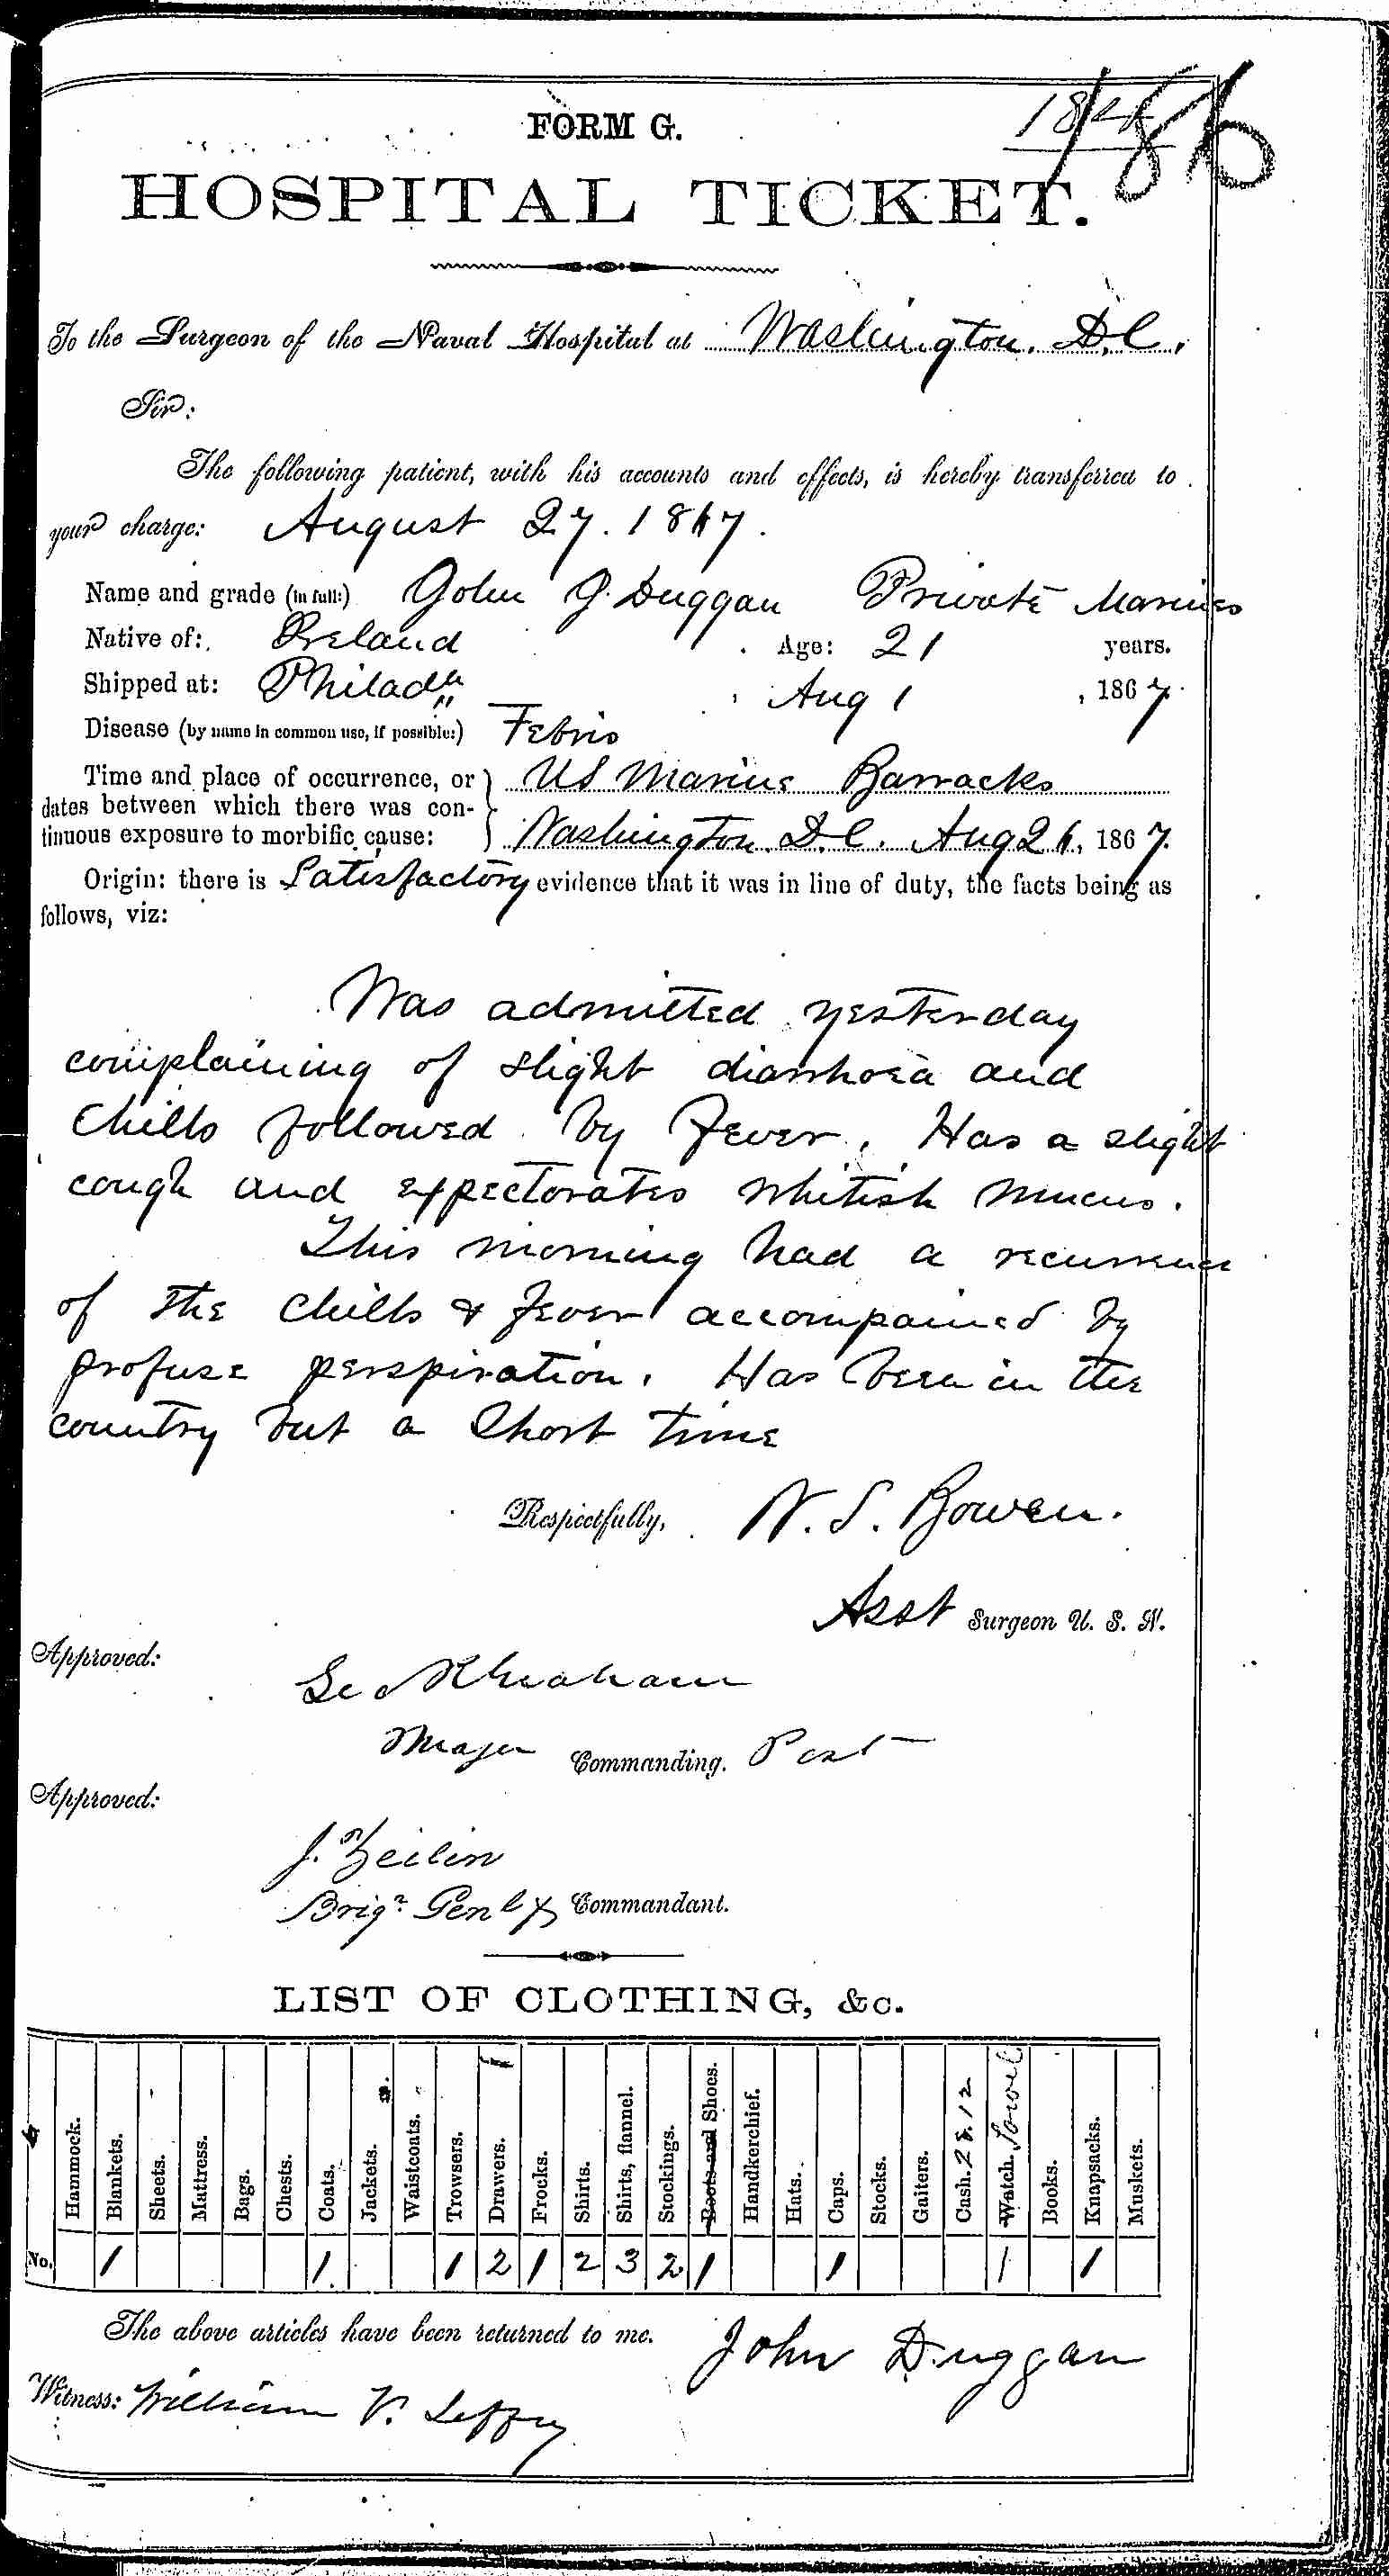 FORM G.
186
HOSPITAL TICKET.
To the Surgeon of the Naval Hospital at Washington. D.C.
Sir:
The following patient, with his accounts and effects, is hereby transferred to
your charge: August 27. 1867.
Name and grade (in full:) John J. Duggan Private Marines
Native of: Ireland Age: 21 years.
Shipped at: Philada Aug 1, 1867.
Disease (by name in common use, if possible:) Febris
Time and place of occurrence, or US Marine Barracks
dates between which there was con-
tinuous exposure to morbific cause: Washington. D.C. Aug 26, 1867.
Origin: there is Satisfactory evidence that it was in line of duty, the facts being as
follows, viz:
Was admitted yesterday
complaining of slight diarrhoea and
Chills followed by Fever. Has a slight
cough and expectorates whitish mucus.
This morning had a recurrence
of the Chills & fever accompained by
profuse perspiration. Has been in the
country but a short time
Respectfully, N. S. Bowen.
Asst Surgeon U. S. N.
Approved:
Geo R Graham
Major Commanding. Post
Approved:
J. Zeilin
Brigr Genl & Commandant.
LIST OF CLOTHING, &c.
Hammock. Blankets. Sheets. Mattress. Bags. Chests. Coats. Jackets. Waistcoats. Trowsers. Drawers. Frocks. Shirts. Shirts, flannel. Stockings. Boots and Shoes. Handkerchief. Hats. Caps. Stocks. Gaiters. Cash. 28.12 Watch. Towel Books. Knapsacks. Muskets.
No. 1 1 1 2 1 2 3 2 1 1 1 1
The above articles have been returned to me. John Duggan
Witness: William V.